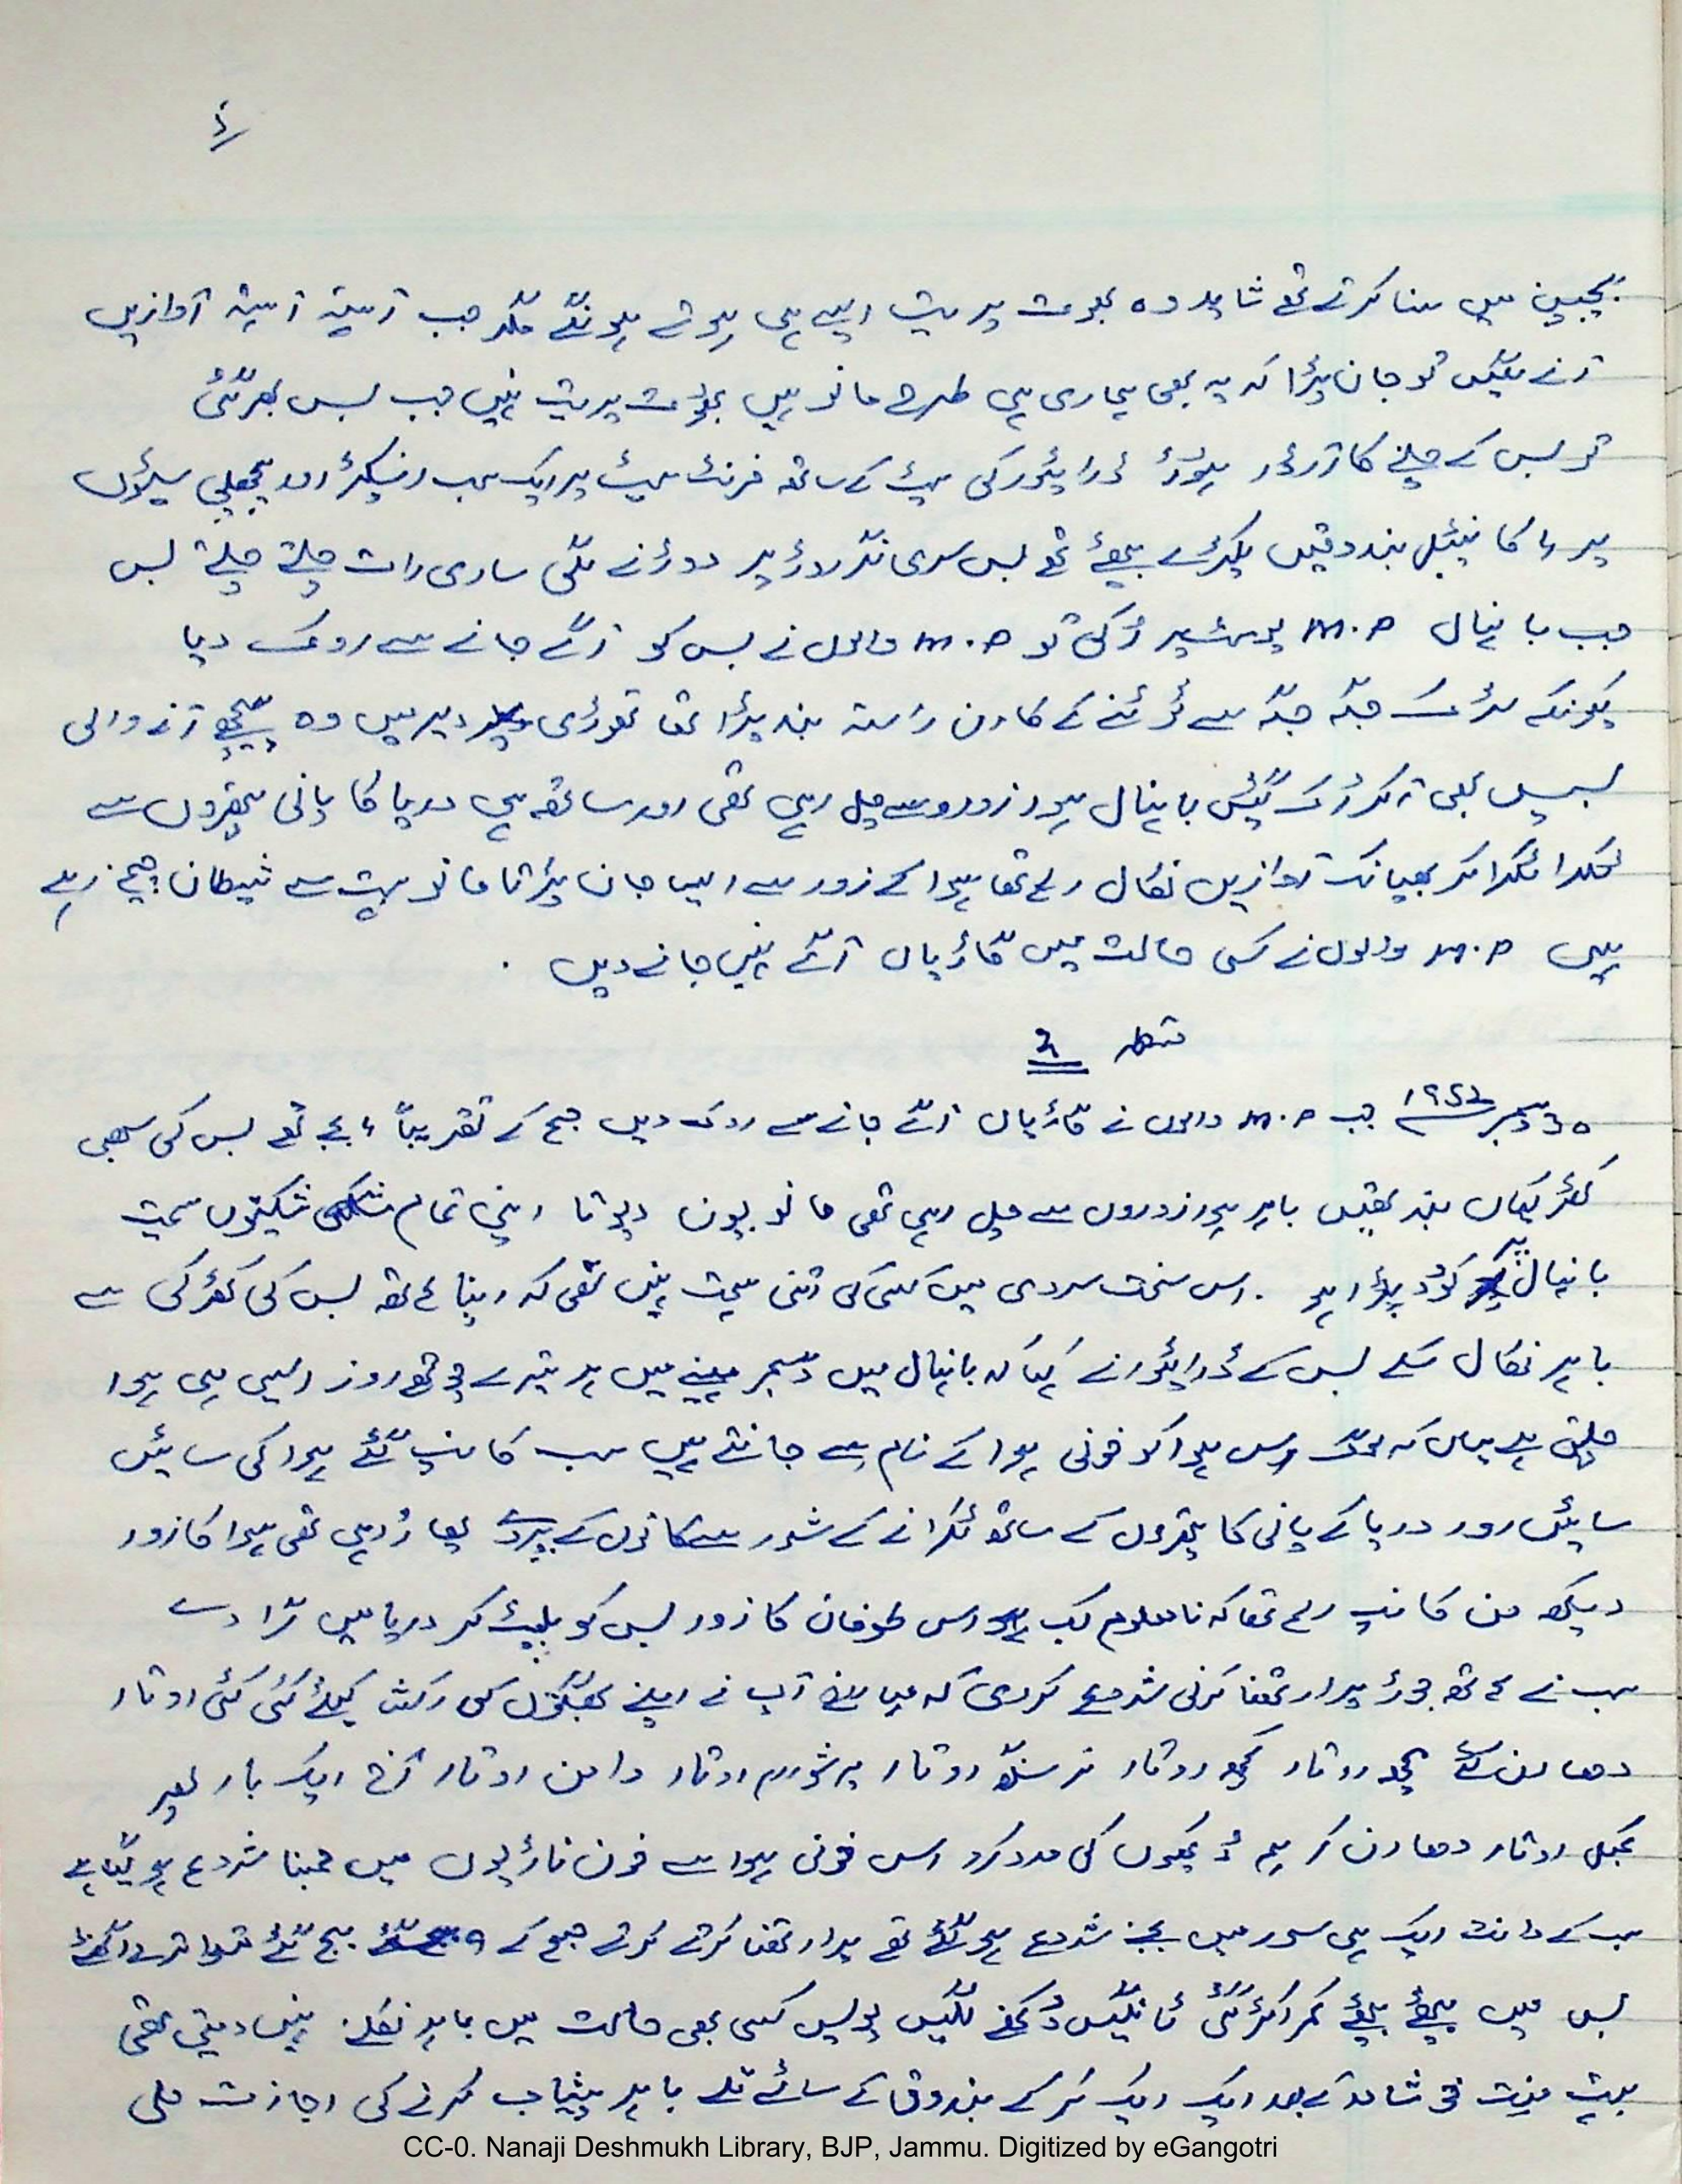 بچپن میں سنا کرتے تھے شاید وہ بھوت پریت ایسے ہی ہوتے ہونگے مگر جب آہستہ آہستہ آوازیں
آنے لگیں تو جان پڑا کہ یہ بھی ہماری ہی طرح مانو ہیں بھوت پریت نہیں جب بس بھر گئی
تو بس کے چلنے کا آرڈر ہوا ڈرائیور کی سیٹ کے ساتھ فرنٹ سیٹ پر ایک سب انسپکٹر اور پچھلی سیٹوں
پر کانسٹیبل بندوقیں پکڑے بیٹھے تھے بس سری نگر روڈ پر دوڑنے لگی ساری رات چلتے چلتے بس
جب بانہال M.P پوسٹ پر رُکی تو M.P والوں نے بس کو آگے جانے سے روک دیا
کیونکہ سڑک جگہ جگہ سے ٹوٹنے کے کارن راستہ بند پڑا تھا تھوڑی دیر میں وہ پیچھے آنے والی
بسیں بھی آکر رُک گئیں بانہال ہوا زوروں سے چل رہی تھی اور ساتھ ہی دریا کا پانی پتھروں سے
ٹکرا ٹکرا کر بھیانک آوازیں نکال رہا تھا ہوا کے زور سے ایسا جان پڑتا مانو بہت سے شیطان چیخ رہے
ہیں M.P والوں نے کسی حالت میں گاڑیاں آگے نہیں جانے دیں .
قسط 2
30 دسمبر ۱۹۵۲ جب M.P والوں نے گاڑیاں آگے جانے سے روک دیں صبح کے تقریباً ۶ بجے تھے بس کی سبھی
کھڑکیاں بند تھیں باہر ہوا زوروں سے چل رہی تھی مانو پون دیوتا اپنی تمام شکتیوں سمیت
بانہال پہ کُود پڑا ہو . اس سخت سردی میں کسی کی اتنی ہمت نہیں تھی کہ اپنا ہاتھ بس کی کھڑکی سے
باہر نکال سکے بس کے ڈرائیور نے کہا کہ بانہال میں دسمبر مہینے میں ہر تیسرے چوتھے روز ایسی ہی ہوا
چلتی ہے یہاں کہ لوگ اس ہوا کو خونی ہوا کے نام سے جانتے ہیں سب کانپ گئے ہوا کی سائیں
سائیں اور دریا کے پانی کا پتھروں کے ساتھ ٹکرانے کے شور سے کانوں کے پردے پھاڑ رہی تھی ہوا کا زور
دیکھ من کانپ رہا تھا کہ نامعلوم کب اس طوفان کا زور بس کو پلیٹ کر دریا میں گرا دے
سب نے ہاتھ جوڑ پرارتھنا کرنی شروع کر دی کہ آپ نے اپنے بھگتوں کی رکھشا کیلئے کئی کئی اوتار
دھارن کئے مچھ اوتار کچھ اوتار نرسنگھ اوتار پرشورام اوتار وامن اوتار آج ایک بار پھر
اوتار دھارن کر ہم دُکھیوں کی مدد کرو اس خونی ہوا سے خون ناڑیوں میں جمنا شروع ہو گیا ہے
سب کے دانت ایک ہی سور میں بجنے شروع ہو گئے تھے پرارتھنا کرتے کرتے صبح کے 9 بج گئے
بس میں بیٹھے بیٹھے کمر اکڑ گئی ٹانگیں دُکھنے لگیں پولیس کسی بھی حالت میں باہر نکلنے نہیں دیتی تھی
بہت منت خوشامد کے بعد ایک ایک کر کے بندوق کے سائے تلے باہر پیشاب کرنے کی اجازت ملی
CC-0. Nanaji Deshmukh Library, BJP, Jammu. Digitized by eGangotri